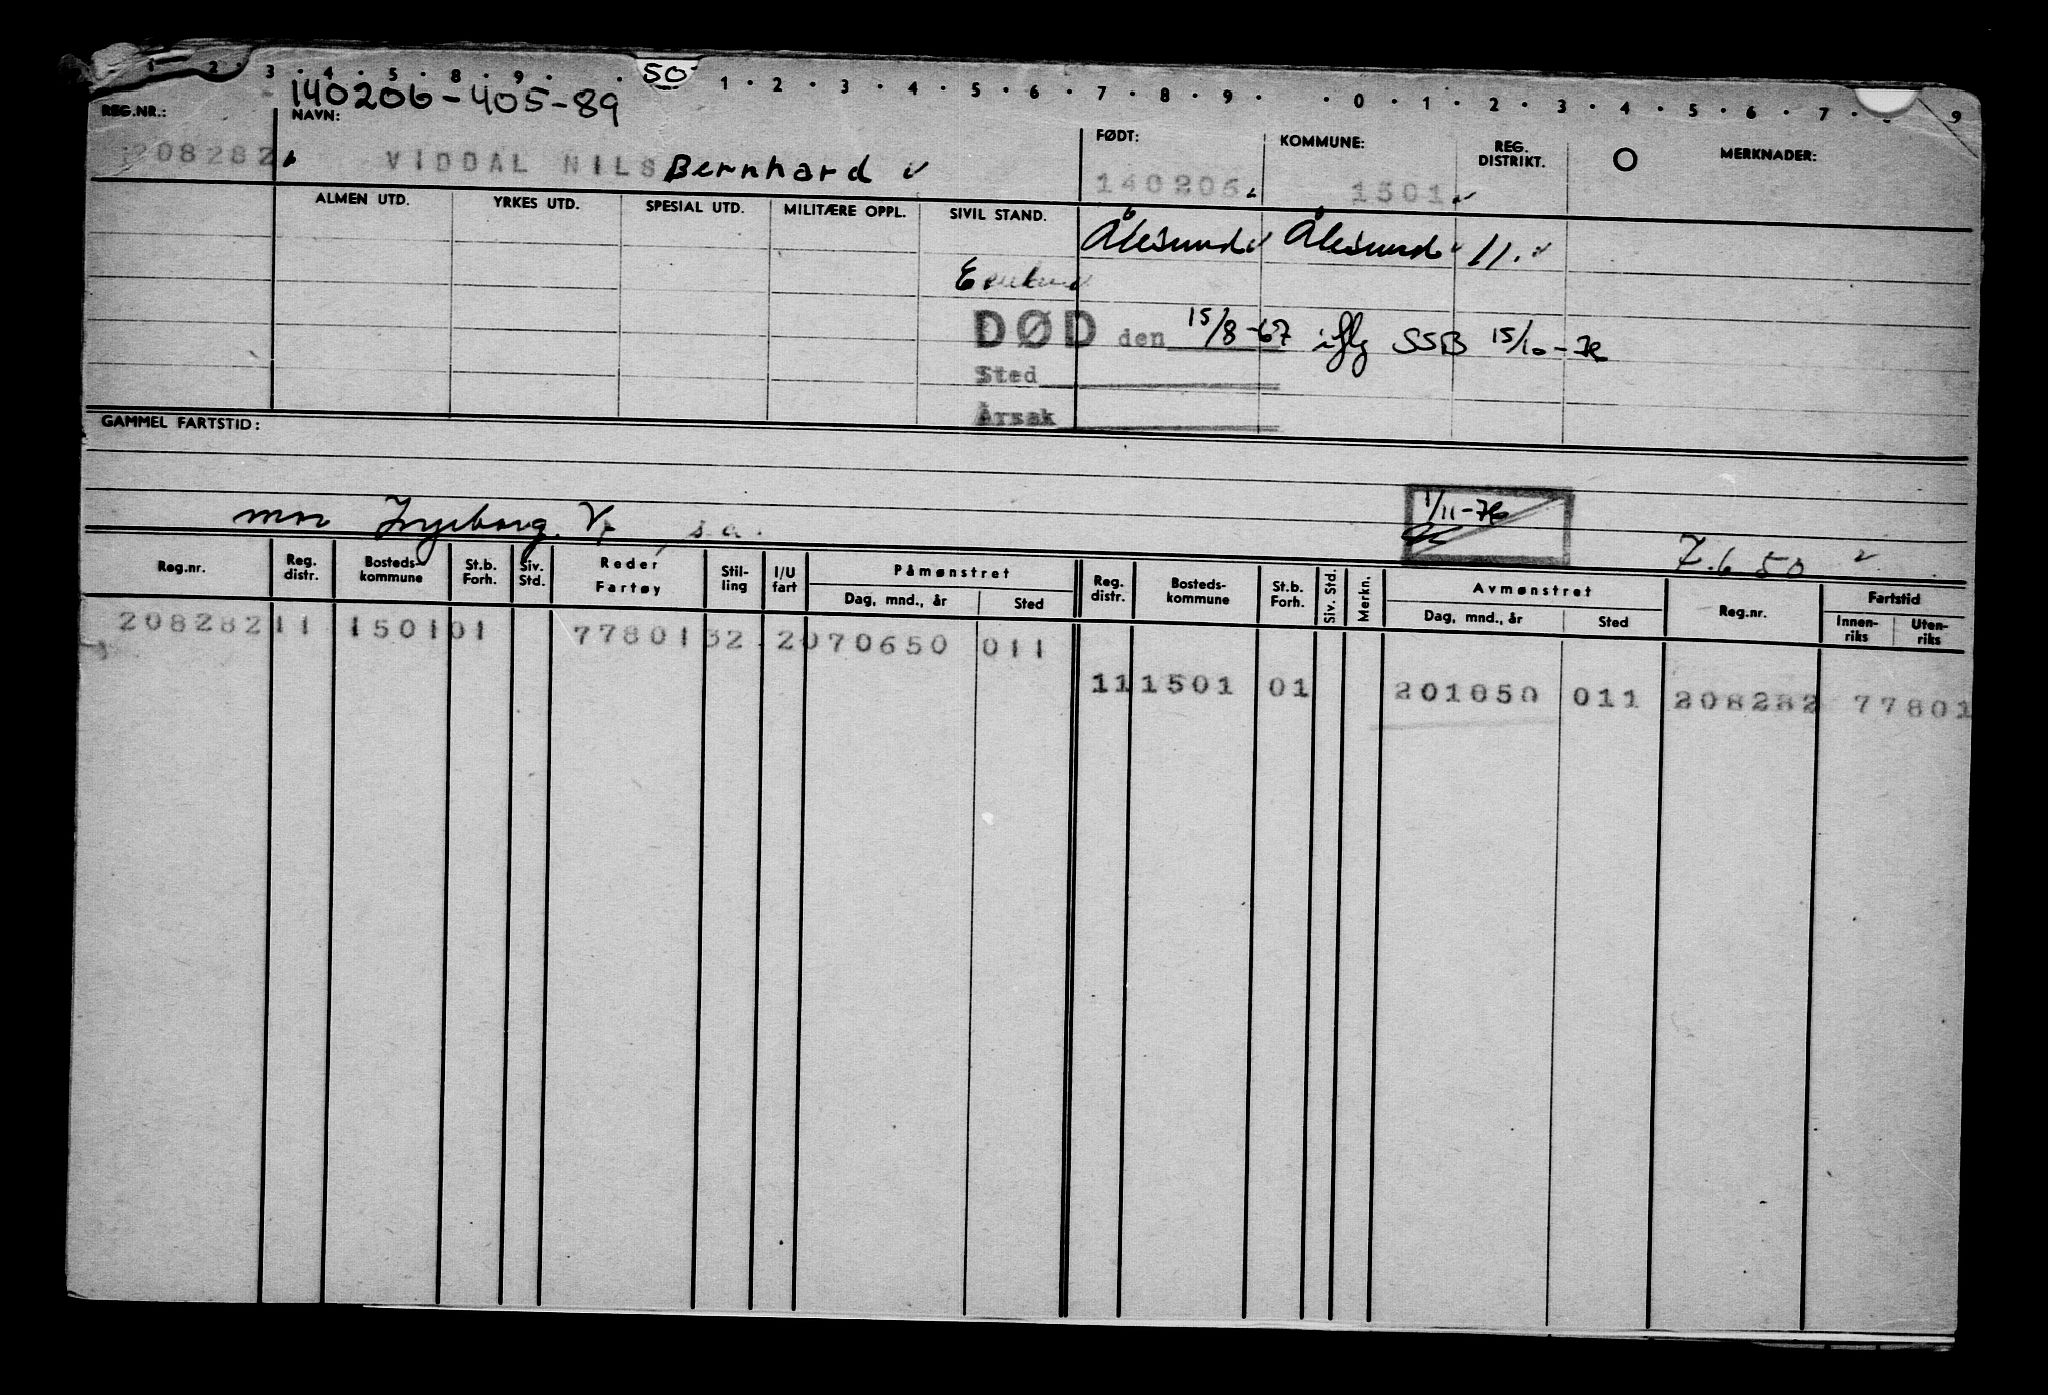 1 · 2 · 3 · 4 · 5 · 8 · 9 · · 50 1 · 2 · 3 · 4 · 5 · 6 · 7 · 8 · 9 · · 0 · 1 · 2 · 3 · 4 · 5 · 6 · 7 · 9
140206-405-89
REG.NR.: NAVN: FØDT: KOMMUNE: REG. DISTRIKT. O MERKNADER:
208282 VIDDAL NILS Bernhard ✓ 140206 1501 ✓
ALMEN UTD. YRKES UTD. SPESIAL UTD. MILITÆRE OPPL. SIVIL STAND.
Ålesund ✓ Ålesund ✓ 11. ✓
DØD den 15/8-67 iflg SSB 15/10-76
Sted
Årsak
GAMMEL FARTSTID:
1/11-76
mor Ingeborg V. s.a.
7.6 50 ✓
Reg.nr. Reg. distr. Bosteds- kommune St.b. Forh. Siv. Std. Reder Fartøy Stil- ling I/U fart Påmønstret Dag, mnd., år Sted Reg. distr. Bosteds- kommune St.b. Forh. Siv. Std. Merkn. Avmønstret Dag, mnd., år Sted Reg.nr. Fartstid Innen- riks Uten- riks
208282 11 1501 01 77801 32 2 070650 011
11 1501 01 201050 011 208282 77801